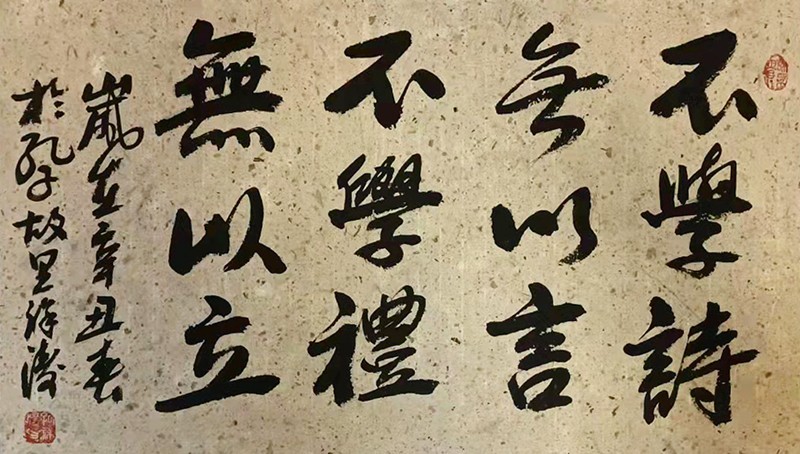 不學詩
無以言
不學禮
無以立
歲在辛丑春
於孔子故里徐濤